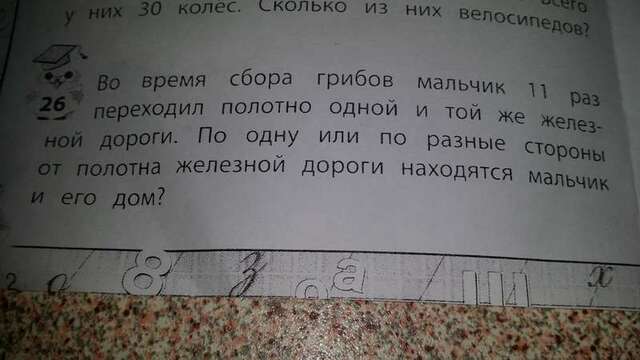 всего
у них 30 колес. Сколько из них велосипедов?
26
Во время сбора грибов мальчик 11 раз
переходил полотно одной и той же желез-
ной дороги. По одну или по разные стороны
от полотна железной дороги находятся мальчик
и его дом?
8 З а Ш х